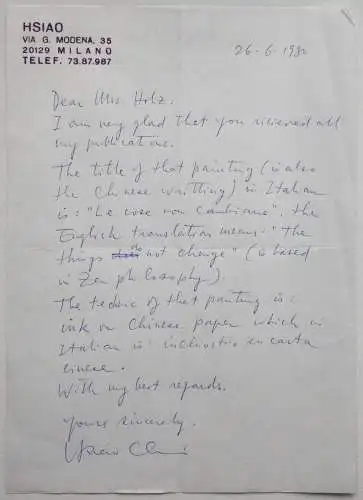 HSIAO
VIA G. MODENA, 35
20129 MILANO
TELEF. 73.87.987
26-6-1980
Dear Mrs. Holz.
I am very glad that you recieved all
my publications.
The title of that painting (is also
the Chinese writting) in Italian
is: "Le cose non cambiano", the
English translation means "the
things do not change" (is based
in Zen philosophy).
The technic of that painting is:
ink on Chinese paper which in
Italian is: inchiostro su carta
cinese.
With my best regards.
Yours sincerely.
Hsiao Chin